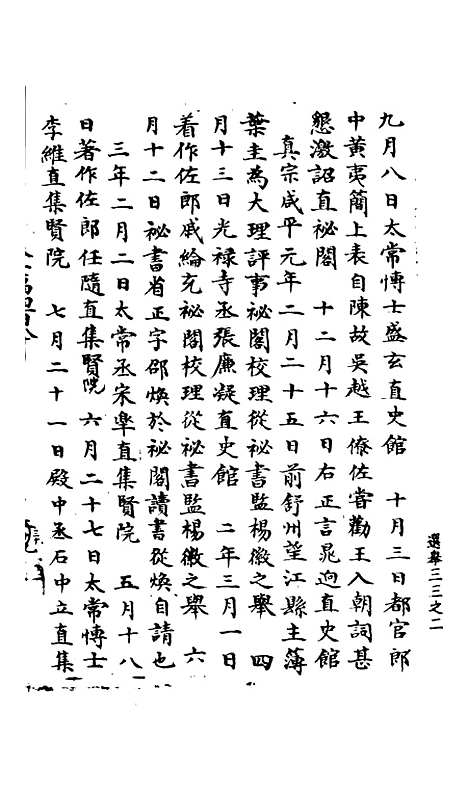 選舉三三之二
九月八日太常愽士盛玄直史館　十月三日都官郎
中黄夷簡上表自陳故吳越王僚佐嘗勸王入朝詞甚
懇激詔直祕閣　十二月十六日右正言晁迥直史館
真宗咸平元年二月二十五日前舒州望江縣主簿
葉圭為大理評事祕閣校理從祕書監楊徽之舉　四
月十三日光禄寺丞張庶凝直史館　二年三月一日
着作佐郎戚綸充祕閣校理從祕書監楊徽之舉　六
月十二日祕書省正字邵煥於祕閣讀書從煥自請也
三年二月二日太常丞宋臯直集賢院　五月十八
日著作佐郎任隨直集賢院　六月二十七日太常愽士
李維直集賢院　七月二十一日殿中丞石中立直集